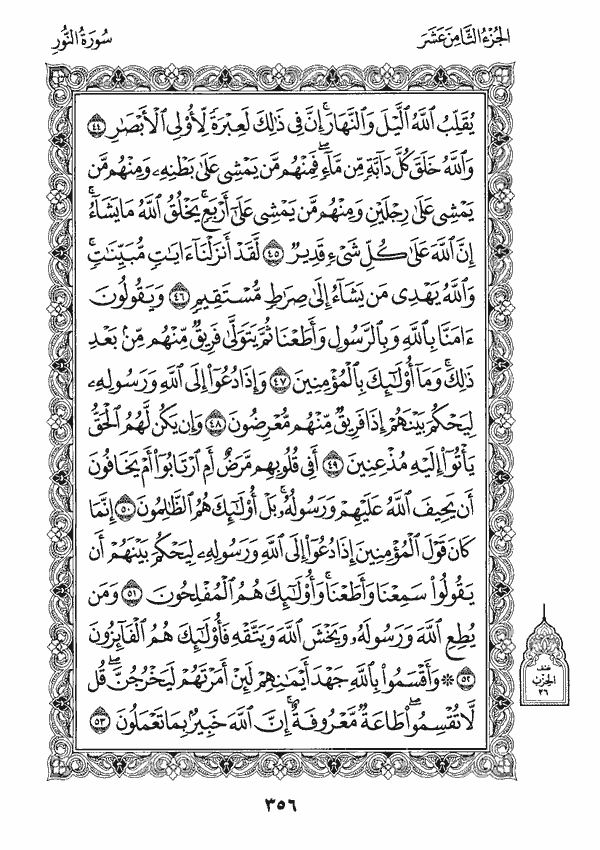 سُورَةُ النُّورِ
الجُزْءُ الثَّامِنَ عَشَرَ
يُقَلِّبُ ٱللَّهُ ٱلَّيْلَ وَٱلنَّهَارَ ۚ إِنَّ فِى ذَٰلِكَ لَعِبْرَةً لِّأُو۟لِى ٱلْأَبْصَٰرِ ٤٤
وَٱللَّهُ خَلَقَ كُلَّ دَآبَّةٍ مِّن مَّآءٍ ۖ فَمِنْهُم مَّن يَمْشِى عَلَىٰ بَطْنِهِۦ وَمِنْهُم مَّن
يَمْشِى عَلَىٰ رِجْلَيْنِ وَمِنْهُم مَّن يَمْشِى عَلَىٰٓ أَرْبَعٍ ۚ يَخْلُقُ ٱللَّهُ مَا يَشَآءُ ۚ
إِنَّ ٱللَّهَ عَلَىٰ كُلِّ شَىْءٍ قَدِيرٌ ٤٥ لَّقَدْ أَنزَلْنَآ ءَايَٰتٍ مُّبَيِّنَٰتٍ ۚ
وَٱللَّهُ يَهْدِى مَن يَشَآءُ إِلَىٰ صِرَٰطٍ مُّسْتَقِيمٍ ٤٦ وَيَقُولُونَ
ءَامَنَّا بِٱللَّهِ وَبِٱلرَّسُولِ وَأَطَعْنَا ثُمَّ يَتَوَلَّىٰ فَرِيقٌ مِّنْهُم مِّنۢ بَعْدِ
ذَٰلِكَ ۚ وَمَآ أُو۟لَٰٓئِكَ بِٱلْمُؤْمِنِينَ ٤٧ وَإِذَا دُعُوٓا۟ إِلَى ٱللَّهِ وَرَسُولِهِۦ
لِيَحْكُمَ بَيْنَهُمْ إِذَا فَرِيقٌ مِّنْهُم مُّعْرِضُونَ ٤٨ وَإِن يَكُن لَّهُمُ ٱلْحَقُّ
يَأْتُوٓا۟ إِلَيْهِ مُذْعِنِينَ ٤٩ أَفِى قُلُوبِهِم مَّرَضٌ أَمِ ٱرْتَابُوٓا۟ أَمْ يَخَافُونَ
أَن يَحِيفَ ٱللَّهُ عَلَيْهِمْ وَرَسُولُهُۥ ۚ بَلْ أُو۟لَٰٓئِكَ هُمُ ٱلظَّٰلِمُونَ ٥٠ إِنَّمَا
كَانَ قَوْلَ ٱلْمُؤْمِنِينَ إِذَا دُعُوٓا۟ إِلَى ٱللَّهِ وَرَسُولِهِۦ لِيَحْكُمَ بَيْنَهُمْ أَن
يَقُولُوا۟ سَمِعْنَا وَأَطَعْنَا ۚ وَأُو۟لَٰٓئِكَ هُمُ ٱلْمُفْلِحُونَ ٥١ وَمَن
يُطِعِ ٱللَّهَ وَرَسُولَهُۥ وَيَخْشَ ٱللَّهَ وَيَتَّقْهِ فَأُو۟لَٰٓئِكَ هُمُ ٱلْفَآئِزُونَ
٥٢ ۞ وَأَقْسَمُوا۟ بِٱللَّهِ جَهْدَ أَيْمَٰنِهِمْ لَئِنْ أَمَرْتَهُمْ لَيَخْرُجُنَّ ۖ قُل
لَّا تُقْسِمُوا۟ ۖ طَاعَةٌ مَّعْرُوفَةٌ ۚ إِنَّ ٱللَّهَ خَبِيرٌۢ بِمَا تَعْمَلُونَ ٥٣
نصف
الحزب
٣٦
٣٥٦